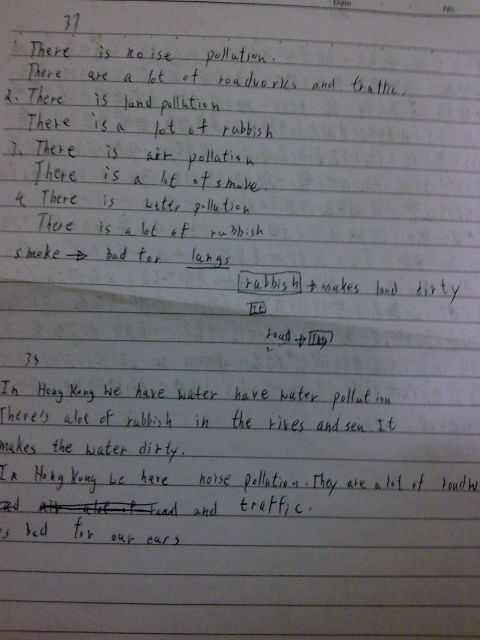 Date No.
37
1. There is noise pollution.
There are a lot of roadworks and traffic.
2. There is land pollution
There is a lot of rubbish
3. There is air pollution
There is a lot of smoke.
4. There is water pollution
There is a lot of rubbish
smoke → bad for langs
rubbish → makes land dirty
It
road →
38
In Hong Kong we have water have water pollution
There's alot of rubbish in the rives and sea It
makes the water dirty.
In Hong Kong we have noise pollution. They are a lot of roadw
and traffic.
s bad for our ears